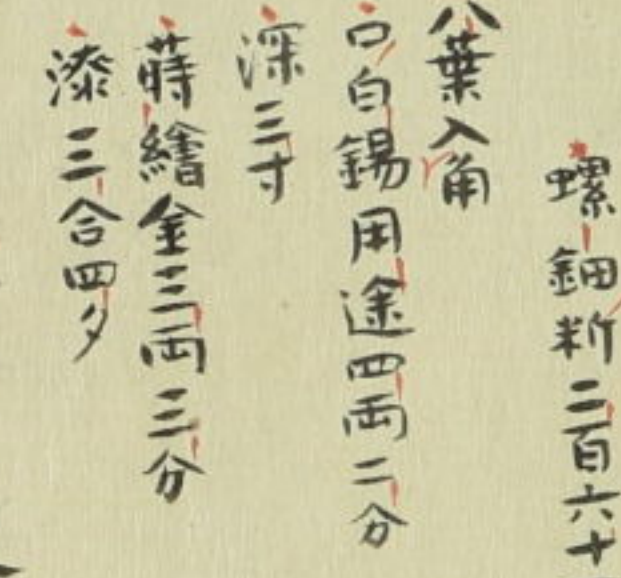 螺鈿析二百六十
八葉入角
口白鍚用途四両二分
深三寸
蒔繪金三両三分
漆三合四夕